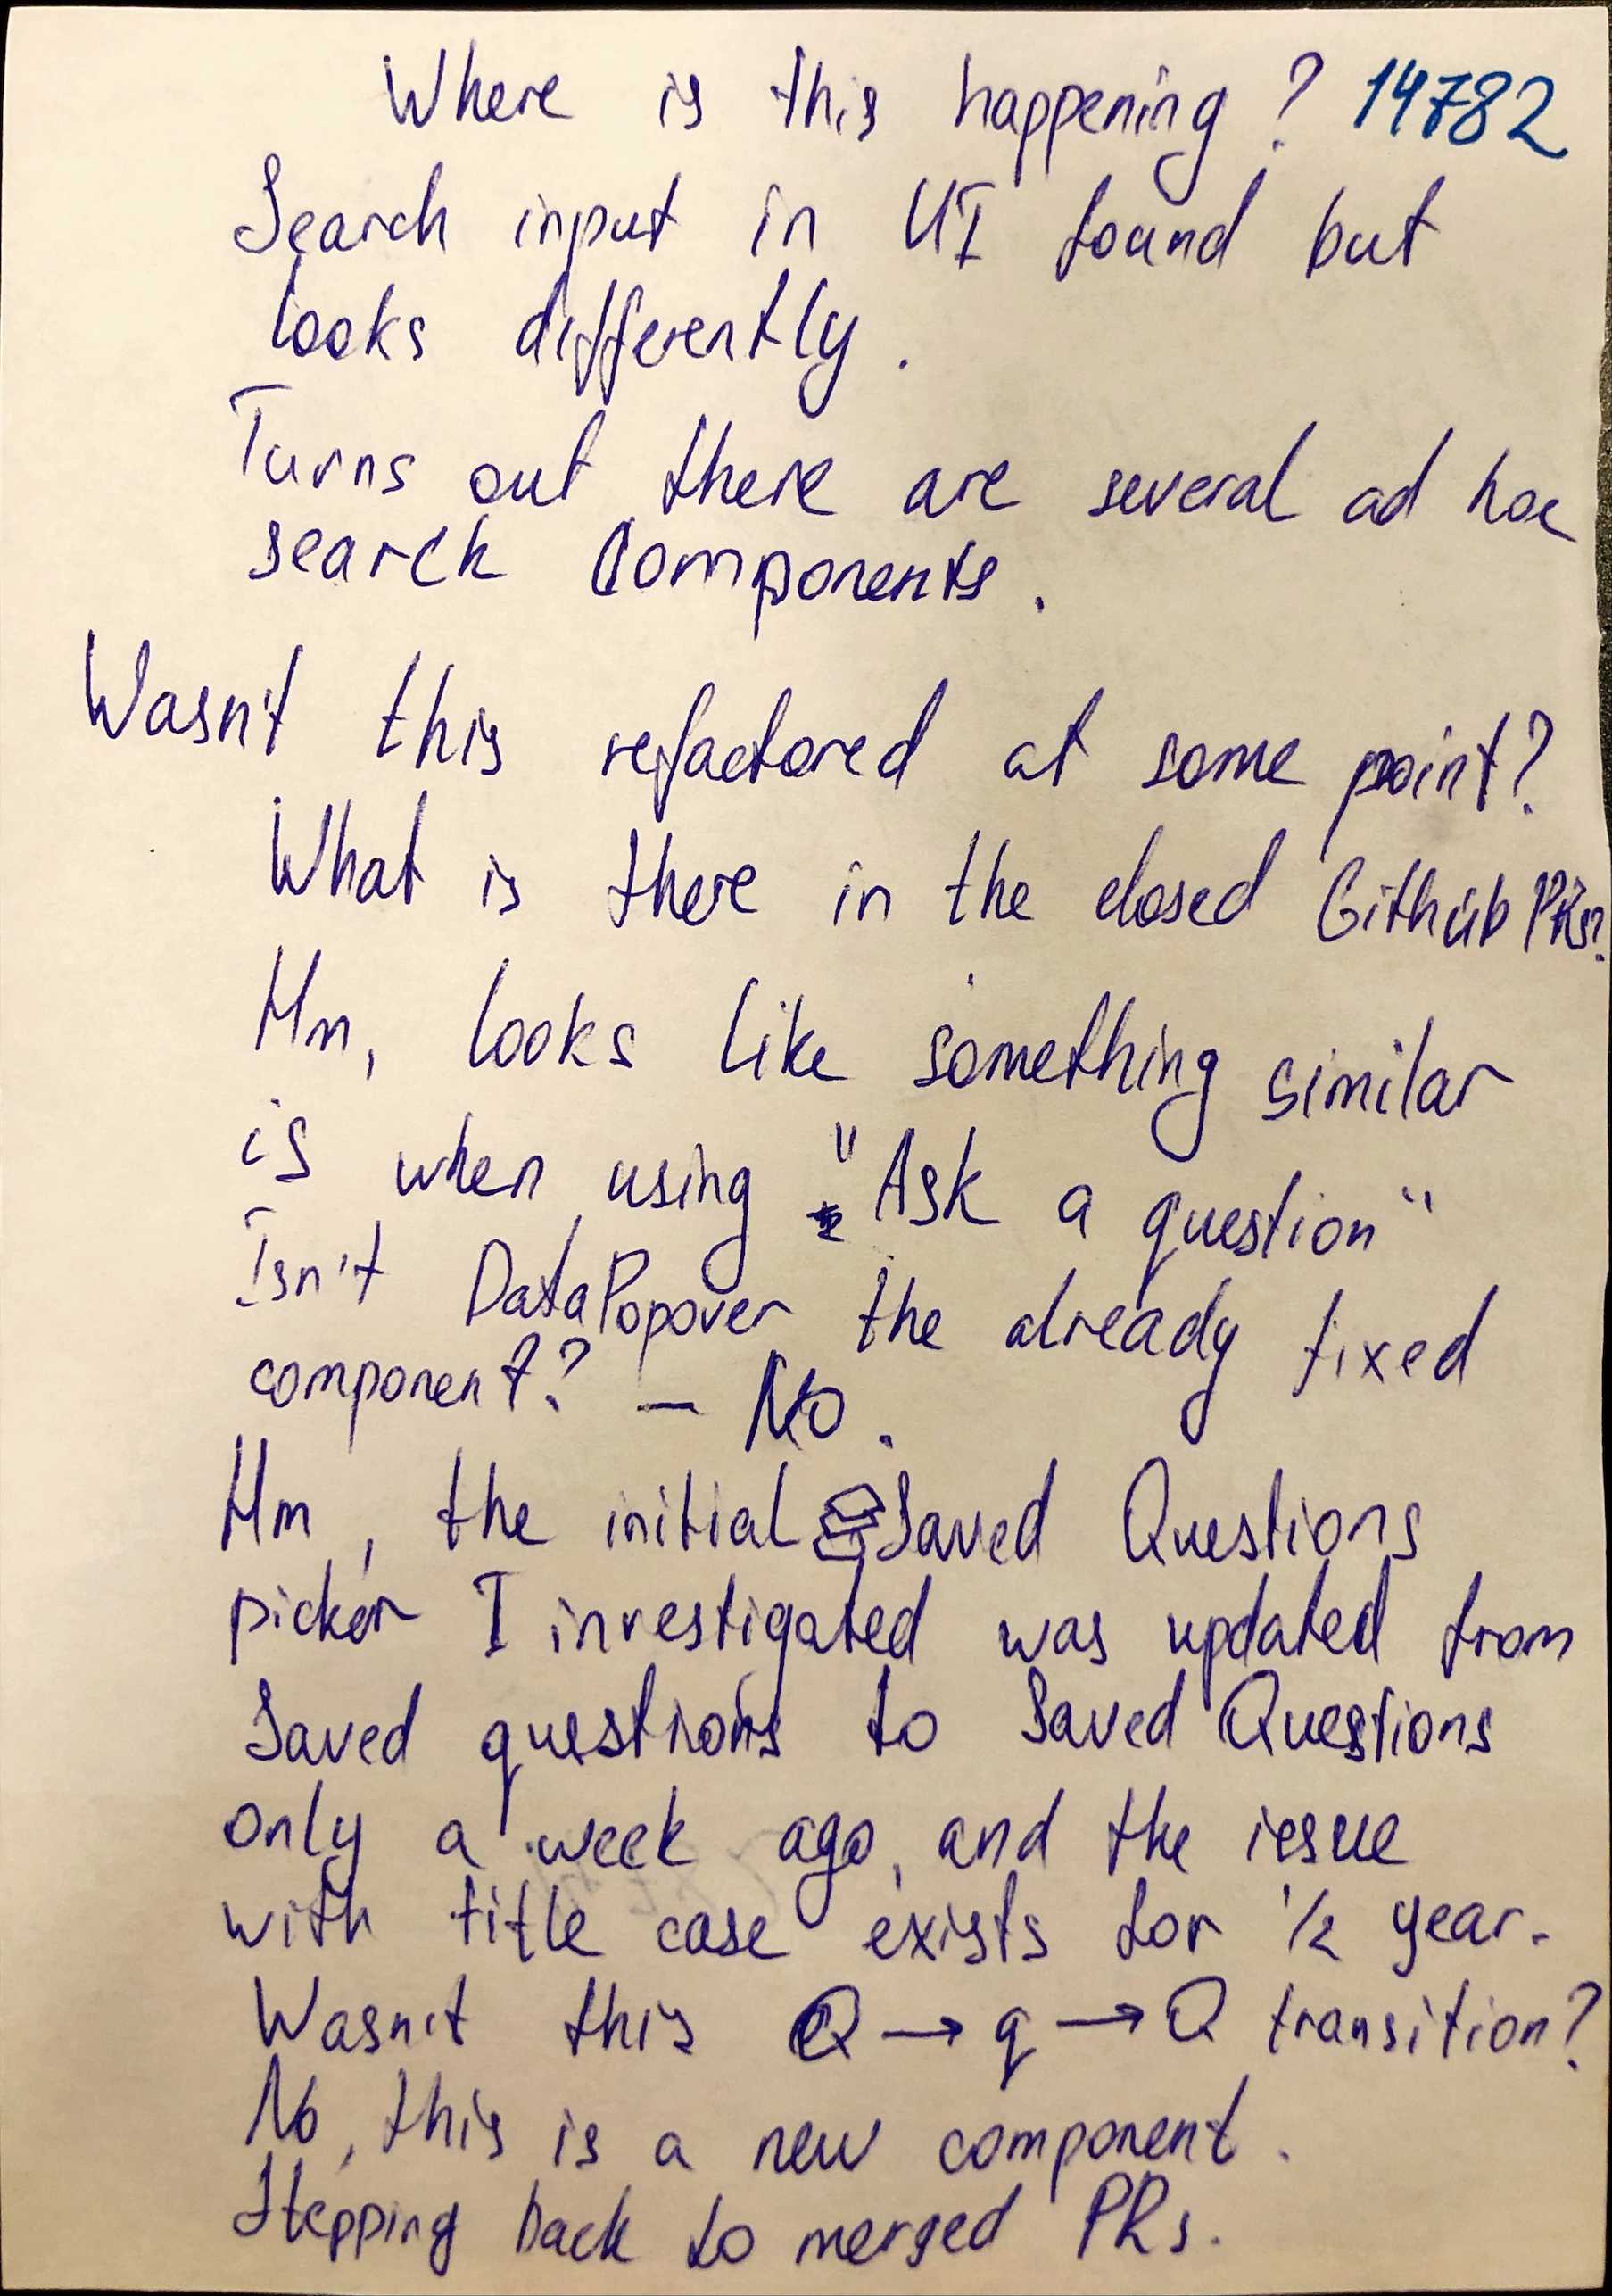 Where is this happening? 14782
Search input in UI found but
looks differently.
Turns out there are several ad hoc
search components.
Wasn't this refactored at some point?
What is there in the closed Github PRs?
Hm, looks like something similar
is when using "Ask a question"
Isn't DataPopover the already fixed
component? — No.
Hm, the initial Saved Questions
picker I investigated was updated from
Saved questions to Saved Questions
only a week ago, and the issue
with title case exists for 1/2 year.
Wasn't this Q → q → Q transition?
No, this is a new component.
Stepping back to merged PRs.